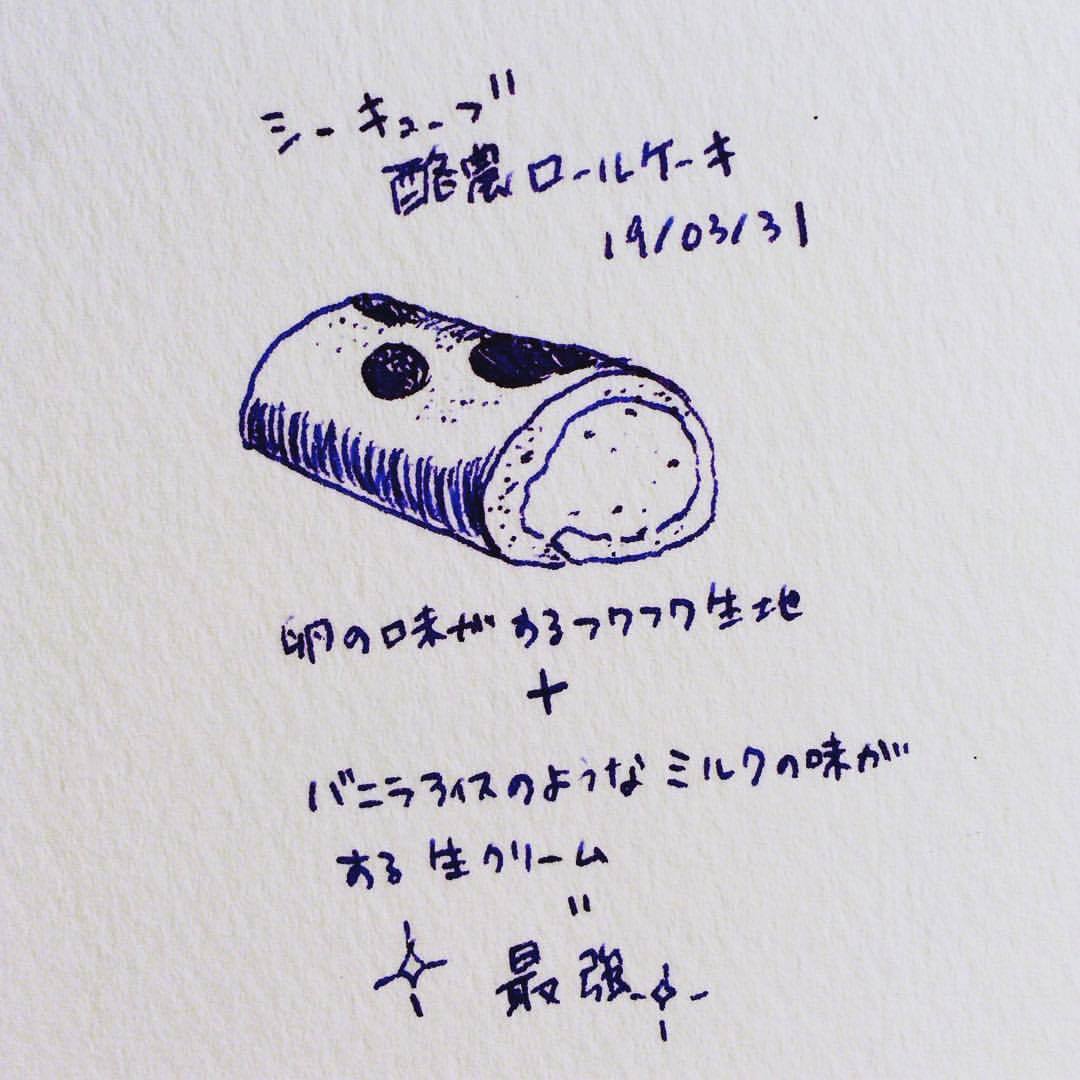 シーキューブ
酪農ロールケーキ
19/03/31
卵の味があるフワフワ生地
+
バニラアイスのようなミルクの味が
ある生クリーム
=
最強